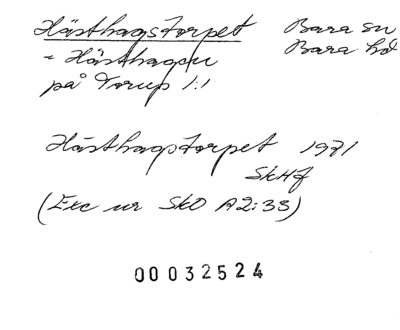 Hästhagstorpet Bara sn
= Hästhagen Bara hd
på Torup 1:1
Hästhagstorpet 1971
SkHf
(Exc ur SkO A2:33)
00032524